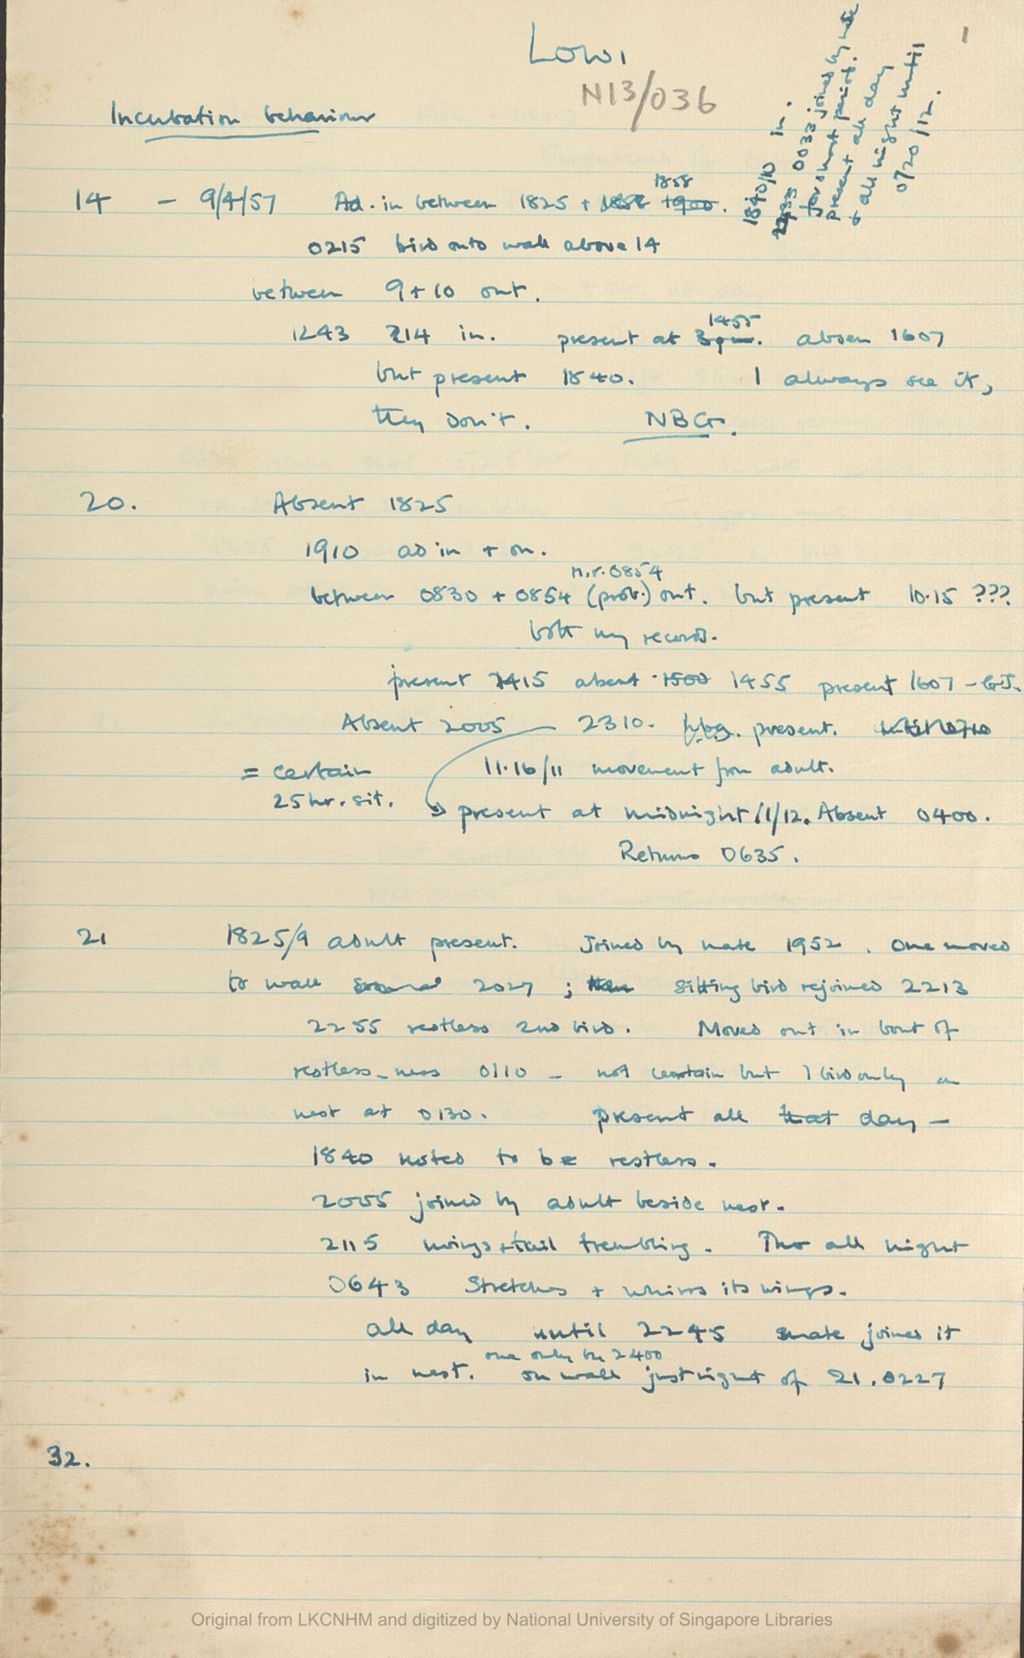 Lowi
1
N13/036
Incubation behaviour
1840/10 in.
2235 0033 joined by mate
for short period.
present all day
+ all night until
0720/12.
14 - 9/4/57 Ad. in between 1825 + 1858 1900.
1858
0215 bird onto wall above 14
between 9 + 10 out.
1243 14 in. present at 3pm. absen 1607
1455
but present 1840. I always see it,
they don't. NBG.
20. Absent 1825
1910 ad in + on.
n.r. 0854
between 0830 + 0854 (prob.) out. but present 10.15 ???
both my records.
present 1415 absent 1500 1455 present 1607 - G.J.
Absent 2005 — 2310. present.
= certain 11.16/11 movement from adult.
25 hr. sit. present at midnight /1/12. Absent 0400.
Returns 0635.
21 1825/9 adult present. Joined by mate 1952. One moved
to wall 2027; sitting bird rejoined 2213
2255 restless 2nd bird. Moved out in bout of
restless-ness 0110 - not certain but 1 bird only on
nest at 0130. present all that day -
1840 noted to be restless.
2005 joined by adult beside nest.
2115 wings + tail trembling. Two all night
0643 Stretches + whirrs its wings.
all day until 2245 mate joined it
one only by 2400
in nest. on wall just right of 21. 0227
32.
Original from LKCNHM and digitized by National University of Singapore Libraries